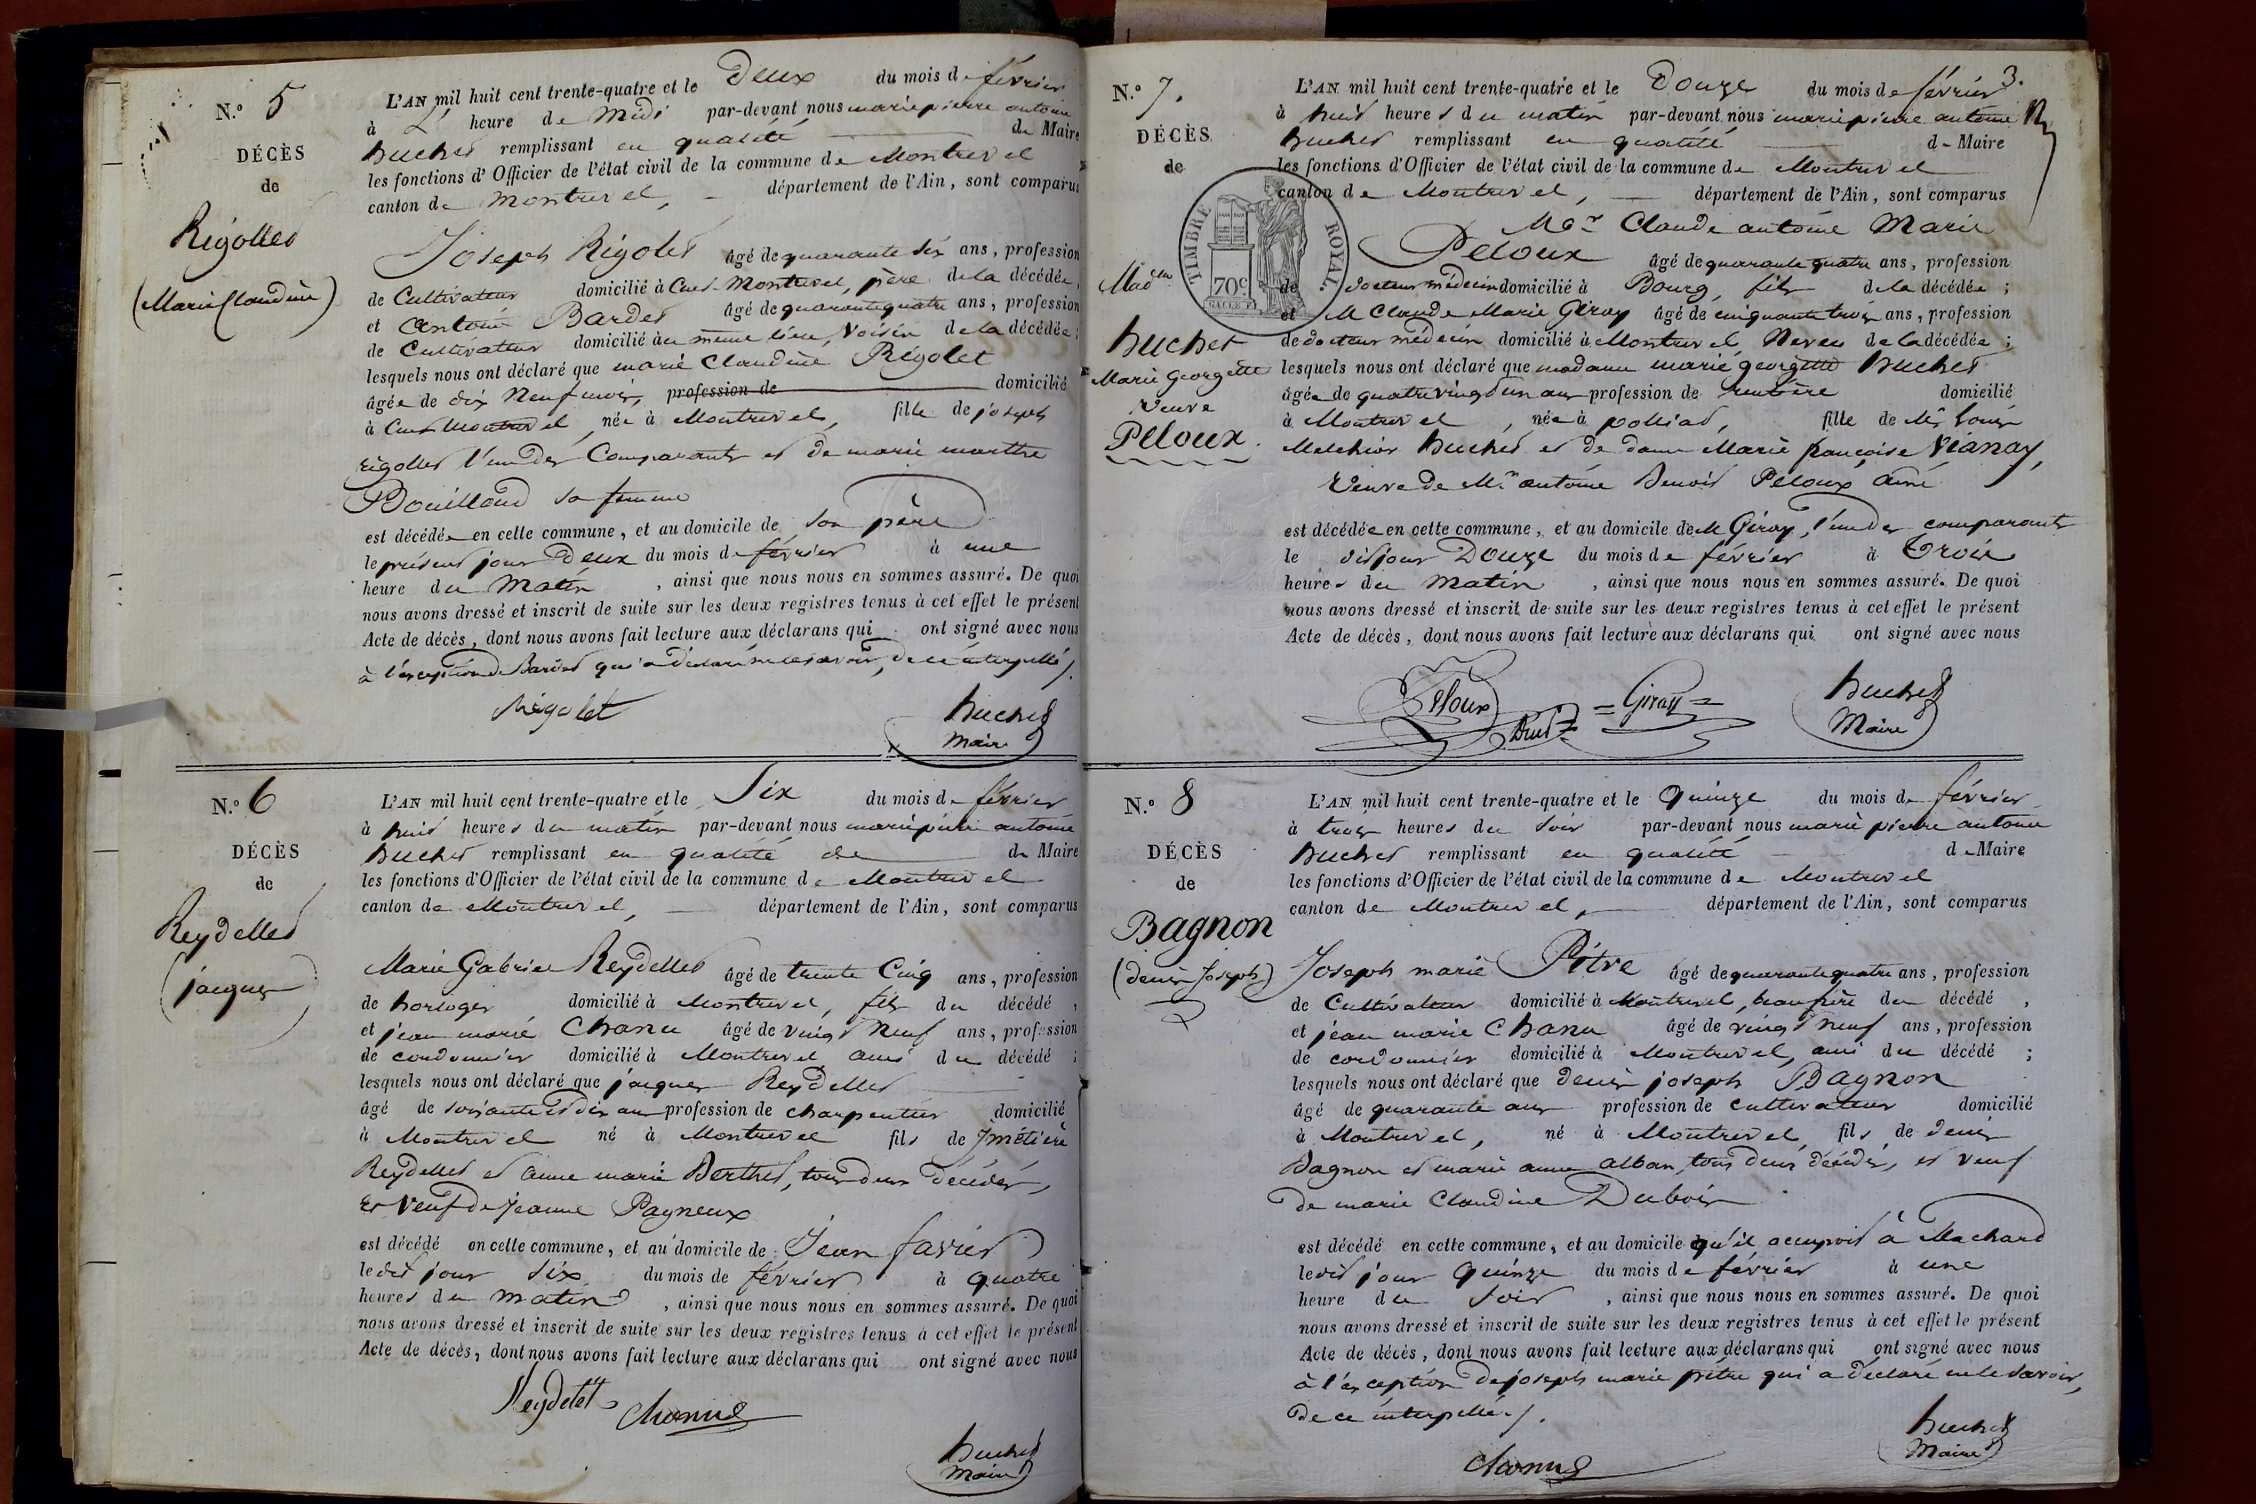 N.o 5
DÉCÈS
de
Rigollet
(Marie Claudine)
L'AN mil huit cent trente-quatre et le Deux du mois de février
à heure de Midi par-devant nous marie pierre antoine
huchet remplissant en qualité de Maire
les fonctions d'Officier de l'état civil de la commune de Montrevel
canton de Montrevel, département de l'Ain, sont comparus
Joseph Rigolet âgé de quarante six ans, profession
de Cultivateur domicilié à Cuet-Montrevel, père de la décédée,
et Antoine Bardet âgé de quarante quatre ans, profession
de Cultivateur domicilié au même lieu, Voisin de la décédée;
lesquels nous ont déclaré que marie Claudine Rigolet
âgée de dix Neuf mois, profession de domicilié
à Cuet Montrevel, née à Montrevel, fille de joseph
rigollet l'un des Comparants et de marie marthe
Bouilloud sa femme
est décédée en cette commune, et au domicile de son père
le présent jour Deux du mois de février à une
heure du Matin, ainsi que nous nous en sommes assuré. De quoi
nous avons dressé et inscrit de suite sur les deux registres tenus à cet effet le présent
Acte de décès, dont nous avons fait lecture aux déclarans qui ont signé avec nous
à l'exception de Bardet qui a déclaré ne le savoir, de ce interpellé /.
Rigolet
huchet
Maire
N.o 6
DÉCÈS
de
Reydellet
(jacques)
L'AN mil huit cent trente-quatre et le Six du mois de février
à huit heures du matin par-devant nous marie pierre antoine
huchet remplissant en qualité de de Maire
les fonctions d'Officier de l'état civil de la commune de Montrevel
canton de Montrevel, département de l'Ain, sont comparus
Marie Gabriel Reydellet âgé de trente Cinq ans, profession
de horloger domicilié à Montrevel, fils du décédé,
et jean marie Chanu âgé de vingt Neuf ans, profession
de cordonnier domicilié à Montrevel ami du décédé;
lesquels nous ont déclaré que jacques Reydellet
âgé de soixante et dix ans profession de charpentier domicilié
à Montrevel né à Montrevel fils de
Reydellet et anne marie Berthet, tous deux décédés,
et Veuf de jeanne Pagneux
est décédé en cette commune, et au domicile de Jean favier
le dit jour Six du mois de février à quatre
heures du matin, ainsi que nous nous en sommes assuré. De quoi
nous avons dressé et inscrit de suite sur les deux registres tenus à cet effet le présent
Acte de décès, dont nous avons fait lecture aux déclarans qui ont signé avec nous
Reydelet Chanu
huchet
Maire
3.
N.o 7.
DÉCÈS
de
TIMBRE ROYAL.
70c
Mad
huchet
Marie Georgette
Veuve
Peloux
L'AN mil huit cent trente-quatre et le Douze du mois de février
à huit heures du matin par-devant nous marie pierre antoine
huchet remplissant en qualité de Maire
les fonctions d'Officier de l'état civil de la commune de Montrevel
canton de Montrevel, département de l'Ain, sont comparus
Mr Claude antoine Marie
Peloux âgé de quarante quatre ans, profession
de docteur médecin domicilié à Bourg, fils de la décédée;
et M Claude Marie Giroy âgé de cinquante trois ans, profession
de docteur médecin domicilié à Montrevel Neveu de la décédée;
lesquels nous ont déclaré que madame marie georgette huchet
âgée de quatre vingt un ans profession de rentière domicilié
à Montrevel, née à polliat, fille de Mr Louis
Melchior huchet et de dame Marie françoise Vianay,
Veuve de Mr antoine Benoit Peloux ainé
est décédée en cette commune, et au domicile de M Giroy, l'un des comparants
le dit jour Douze du mois de février à trois
heures du Matin, ainsi que nous nous en sommes assuré. De quoi
nous avons dressé et inscrit de suite sur les deux registres tenus à cet effet le présent
Acte de décès, dont nous avons fait lecture aux déclarans qui ont signé avec nous
Peloux Giroy
huchet
Maire
N.o 8
DÉCÈS
de
Bagnon
(denis Joseph)
L'AN mil huit cent trente-quatre et le Quinze du mois de février
à trois heures du soir par-devant nous marie pierre antoine
huchet remplissant en qualité de Maire
les fonctions d'Officier de l'état civil de la commune de Montrevel
canton de Montrevel, département de l'Ain, sont comparus
Joseph marie Pitre âgé de quarante quatre ans, profession
de Cultivateur domicilié à Montrevel, beau frère du décédé,
et jean marie Chanu âgé de vingt neuf ans, profession
de cordonnier domicilié à Montrevel, ami du décédé;
lesquels nous ont déclaré que denis joseph Bagnon
âgé de quarante ans profession de cultivateur domicilié
à Montrevel, né à Montrevel, fils de denis
Bagnon et marie anne alban, tous deux décédés, et veuf
de marie Claudine Dubois
est décédé en cette commune, et au domicile qu'il occupoit à Machard
le dit jour quinze du mois de février à une
heure du soir, ainsi que nous nous en sommes assuré. De quoi
nous avons dressé et inscrit de suite sur les deux registres tenus à cet effet le présent
Acte de décès, dont nous avons fait lecture aux déclarans qui ont signé avec nous
à l'exception de joseph marie pitre qui a déclaré ne le savoir,
de ce interpellé /.
Chanu
huchet
Maire